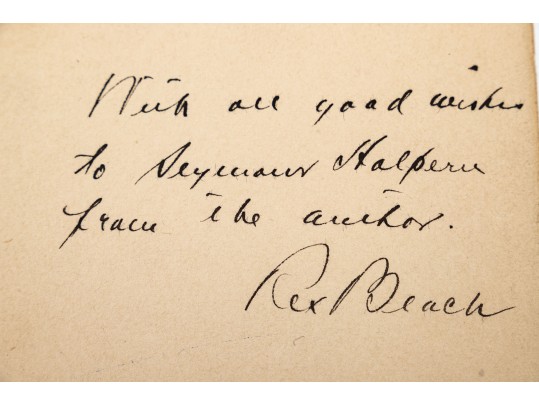 With all good wishes
to Seymour Halpern
from the author.
Rex Beach